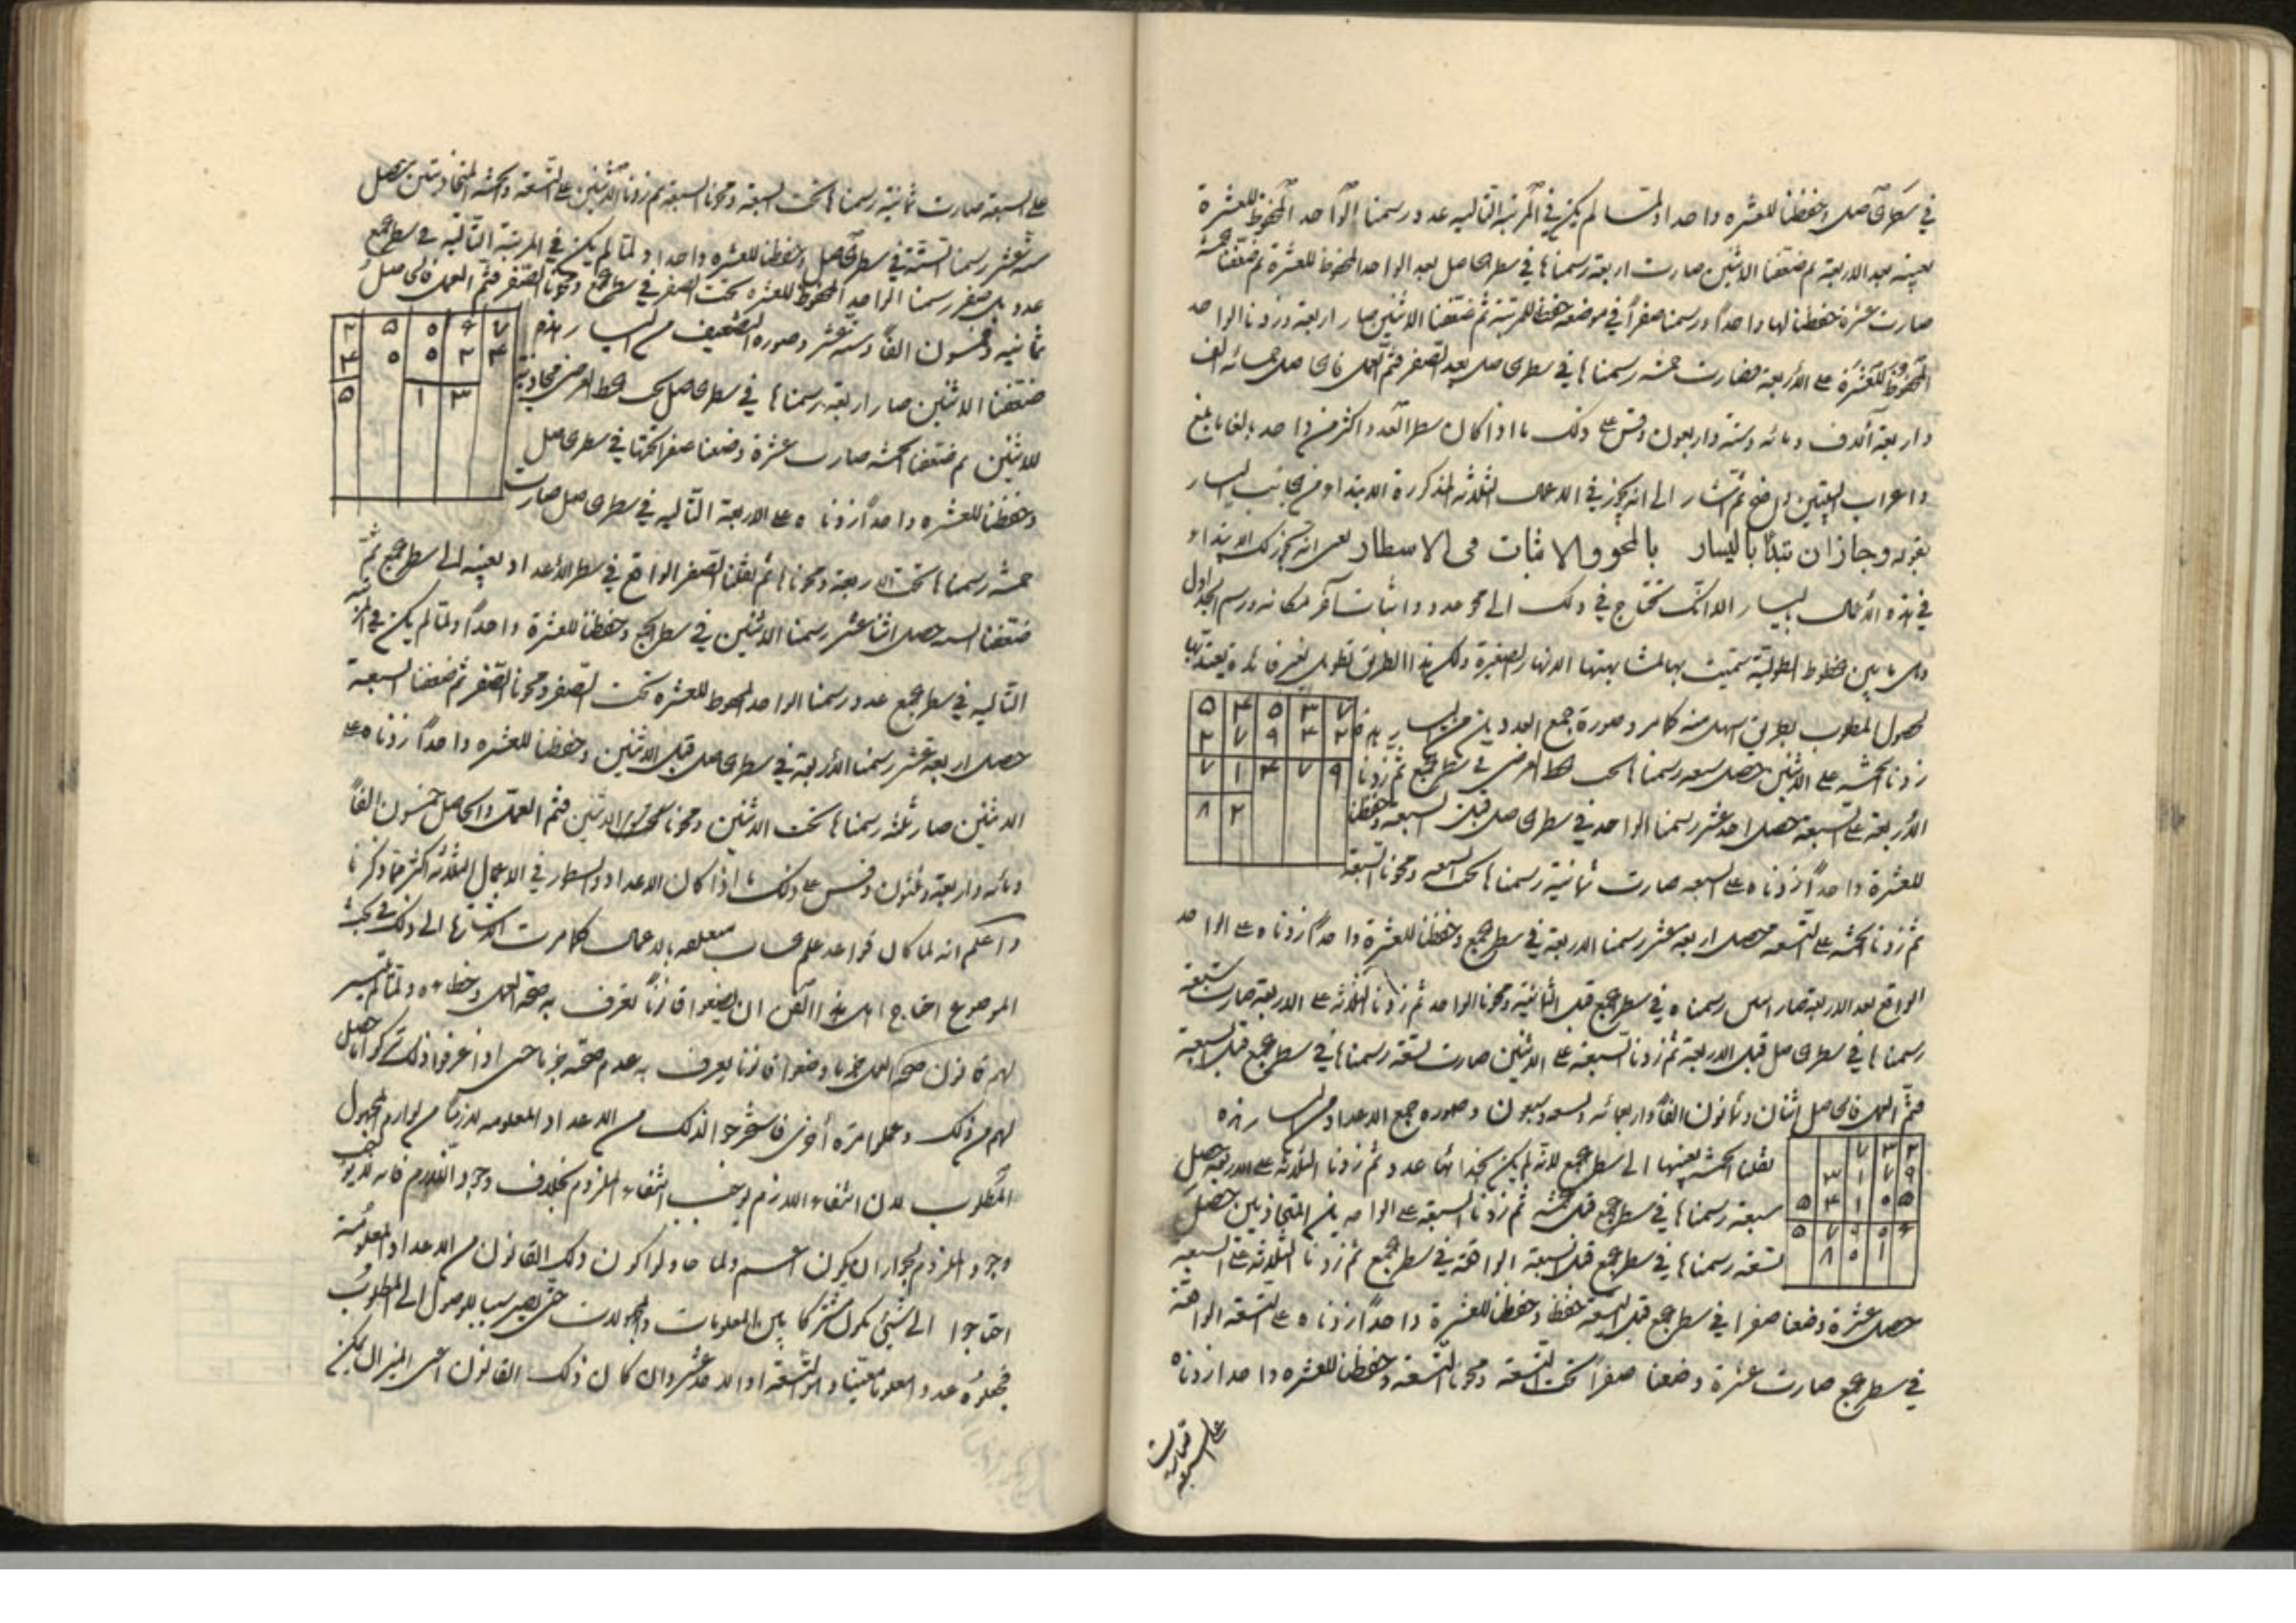 في سطر الحاصل وحفظنا للعشرة واحدا ولما لم يكن في المرتبة التالية عدد رسمنا الواحد المحفوظ للعشرة
بعينه بعد الاربعة ثم ضعفنا الاثنين صارت اربعة رسمناها في سطر الحاصل بعد الواحد المحفوظ للعشرة ثم ضعفنا خمسة
صارت عشرة حفظنا لها واحداً ورسمنا صفراً في موضعه حفظنا للمرتبة ثم ضعفنا الاثنين صار اربعة وزدنا الواحد
المحفوظ للعشرة على الأربعة فصارت خمسة رسمناها في سطر الحاصل بعد الصفر فتم العمل فالحاصل خمسمائة الف
واربعة آلاف ومائة وستة واربعون وقس على ذلك ما اذا كان سطر العدد اكثر من واحد بالغا ما بلغ
واعراب البيتين واضح ثم اشار الى انه يجوز في الاعمال الثلاثة المذكورة الابتداء من جانب اليسار
بقوله وجاز ان تبدأ باليسار بالمحو والاثبات فى الاسطار يعنى انه يجوز لك الابتداء
في هذه الأعمال باليسار الا انك تحتاج في ذلك الى محو عدد واثبات آخر مكانه ورسم الجداول
وهى ما بين خطوط الطولية سميت بها لمشابهتها الانهار الصغيرة ولكن هذا الطريق تطويل بغير فائدة يعتد بها
لحصول المطلوب بطريق اسهل منه كما مر وصورة جمع العددين من اليسار هذه
٥ ٤ ٥ ٣ ٧
٢ ٧ ٩ ٤ ٢
٧ ١ ٤ ٧ ٩
٨ ٢
زدنا الخمسة على الاثنين حصل سبعة رسمناها تحت الخط العرضى في سطر الجمع ثم زدنا
الأربعة على السبعة حصل احد عشر رسمنا الواحد في سطر الحاصل قبل السبعة وحفظنا
للعشرة واحداً زدناه على السبعه صارت ثمانية رسمناها تحت السبعه ومحونا السبعة
ثم زدنا الخمسة على التسعه حصل اربعة عشر رسمنا الاربعة في سطر الجمع وحفظنا للعشرة واحداً زدناه على الواحد
الواقع بعد الاربعة صار اثنين رسمناه في سطر الجمع قبل الثمانية ومحونا الواحد ثم زدنا الثلاثة على الاربعة صارت سبعة
رسمناها في سطر الحاصل قبل الاربعة ثم زدنا السبعة على الاثنين صارت تسعة رسمناها في سطر الجمع قبل السبعة
فتم العمل فالحاصل اثنان وثمانون الفاً واربعمائه وتسعه وسبعون وصوره جمع الاعداد من اليسار هذه
٧ ٣ ٢
٣ ١ ٧ ٩
٥ ٤ ١ ٥ ٥
٥ ٧ ٩ ٥ ٦
٨ ٥ ١
نقلنا الخمسة بعينها الى سطر الجمع لانه لم يكن بحذائها عدد ثم زدنا الثلاثة على الاربعة حصل
سبعة رسمناها في سطر الجمع قبل الخمسة ثم زدنا السبعة على الواحدين المتحاذيين حصل
تسعة رسمناها في سطر الجمع قبل السبعة الواقعة في سطر الجمع ثم زدنا الثلاثة على السبعه
حصل عشرة وضعنا صفرا في سطر الجمع قبل التسعة وحفظنا للعشرة واحداً زدناه على التسعة الواقعة
في سطر الجمع صارت عشرة وضعنا صفراً تحت التسعة ومحونا التسعة وحفظنا للعشرة واحدا زدناه
على السبعه فصارت
على السبعة صارت ثمانية رسمناها تحت السبعة ومحونا السبعة ثم زدنا الاثنين على التسعة والخمسة المتحاذيتين حصل
ستة عشر رسمنا الستة في سطر الحاصل وحفظنا للعشرة واحدا ولما لم يكن في المرتبة التالية في سطر الجمع
عدد بل صفر رسمنا الواحد المحفوظ للعشرة تحت الصفر في سطر الجمع ومحونا الصفر فتم العمل فالحاصل
ثمانية وخمسون الفاً وستة عشر وصورة التضعيف من اليسار هذه
٢ ٥ ٥ ٦ ٧
٤ ٥ ٥ ٢ ٤
٥ ١ ٣
ضعفنا الاثنين صار اربعة رسمناها في سطر الحاصل تحت الخط العرضى محاذية
للاثنين ثم ضعفنا الخمسة صارت عشرة وضعنا صفرا تحتها في سطر الحاصل
وحفظنا للعشرة واحداً زدناه على الاربعة التالية في سطر الحاصل صارت
خمسة رسمناها تحت الاربعة ومحوناها ثم نقلنا الصفر الواقع في سطر الأعداد بعينه الى سطر الجمع ثم
ضعفنا الستة حصل اثنا عشر رسمنا الاثنين في سطر الجمع وحفظنا للعشرة واحداً ولما لم يكن في المرتبة
التالية في سطر الجمع عدد رسمنا الواحد المحفوظ للعشرة تحت الصفر ومحونا الصفر ثم ضعفنا السبعة
حصل اربعة عشر رسمنا الأربعة في سطر الحاصل قبل الاثنين وحفظنا للعشرة واحداً زدناه على
الاثنين صار ثلثة رسمناها تحت الاثنين ومحونا الاثنين فتم العمل والحاصل خمسون الفاً
ومائه واربعة وثلثون وقس على ذلك ما اذا كان الاعداد والسطور في الاعمال الثلاثة اكثر مما ذكرنا
واعلم انه لما كان قواعد علم الحساب متعلقه بالاعمال كما مرت الاشارة الى ذلك في بحث
الموضوع احتاج اهل هذا الفن ان يضعوا قانوناً لعرف به صحة العمل وخطاءه ولما لم يتيسر
لهم قانون صحة العمل جزما وضعوا قانونا يعرف به عدم صحته جزما حتى اذا عرفوا ذلك تركوا ما حصل
لهم من ذلك وعملوا مرة أخرى فاستخرجوا لذلك من الاعداد المعلومه لازما من لوازم المجهول
المطلوب لان انتفاء اللازم يوجب انتفاء الملزوم بخلاف وجود اللازم فانه لا يوجب
وجود الملزوم لجواز ان يكون اعم ولما حاولوا كون ذلك القانون من الاعداد المعلومة
احتاجوا الى شئ يكون مشتركا بين المعلومات والمجهولات حتى يصير سببا للوصول الى المطلوب
فجعلوه عددا معلوما معينا وهو التسعة او الاحد عشر وان كان ذلك القانون اعنى الميزان يمكن